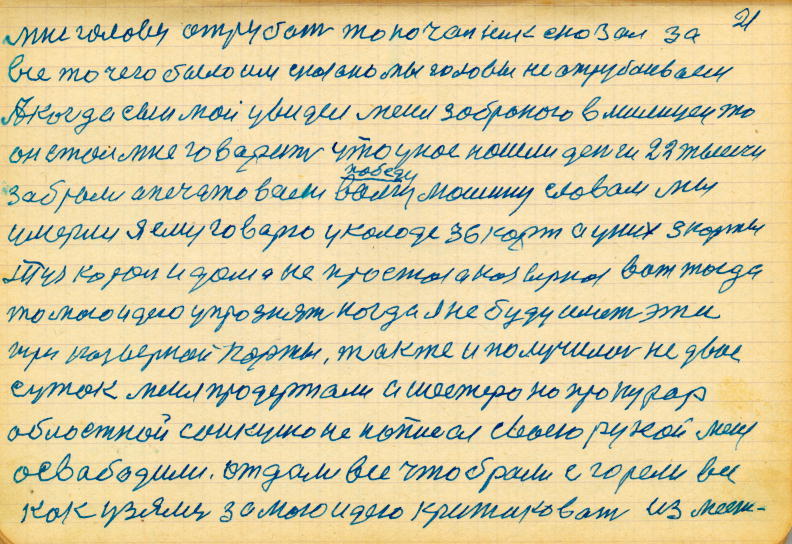 21
мне головы отрубат то началник сказал за
все то чего было им сказано мы головы не отрубаваем
А когда сын мой увидел меня забраного в милицеи то
он стал мне говарит что у нас нашли денги 22 тысечи
забрали апечатовали победу машину словам мы
умерли я ему говарю у колоде 36 карт а у них 3 карты
туз корол и дама не простыя а козырныя вот тогда
то мою идею упрознят когда я не буду имет эти
три козырной карты, так же и получилос не двое
суток меня продержали а шестеро но прокурар
областной не потписал своею рукой меня
освабадили. отдали все что брали с горели все
как узялис за мою идею критиковат из мест-